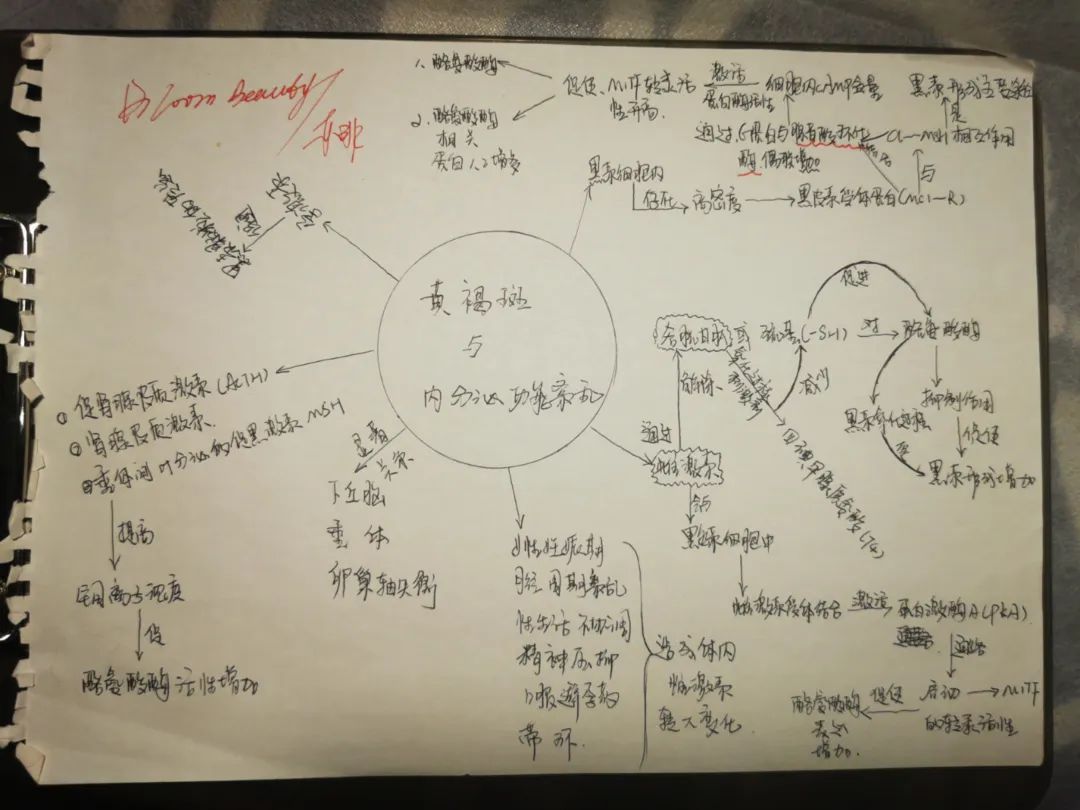 Zoom Beauty
1、酪氨酸酶
2、酪氨酸酶
相关
蛋白1、2增多
促使、MITF转录活
性升高
激活
蛋白酶活性
细胞内cAMP含量
黑素形成主要
是
相互作用
通过G蛋白与腺苷酸环化
酶偶联增加
α-MSH
与
黑素细胞内
存在
高密度
黑皮素受体蛋白(MC1-R)
黄褐斑
与
内分泌功能紊乱
①促肾腺皮质激素(ACTH)
②肾腺皮质激素、
③垂体间叶分泌的促黑激素MSH
提高
铜离子观度
促
酪氨酸酶活性增加
显著
关系
下丘脑
垂体
卵巢轴失衡
女性妊娠期
月经周期紊乱
性生活不协调
精神压抑
口服避孕药
带环.
造成体内
性激素
较大变化.
通过
雌性激素
消除、
谷胱甘肽
或
巯基(-SH)
对
酪氨酸酶
促进
减少
抑制作用
促使
黑素形成增加
黑素氧化过程
与
黑素细胞中
性激素受体结合
激活
蛋白激酶A(PKA)
启动
MITF
的转录活性
促使
酪氨酸酶
表达
增加.